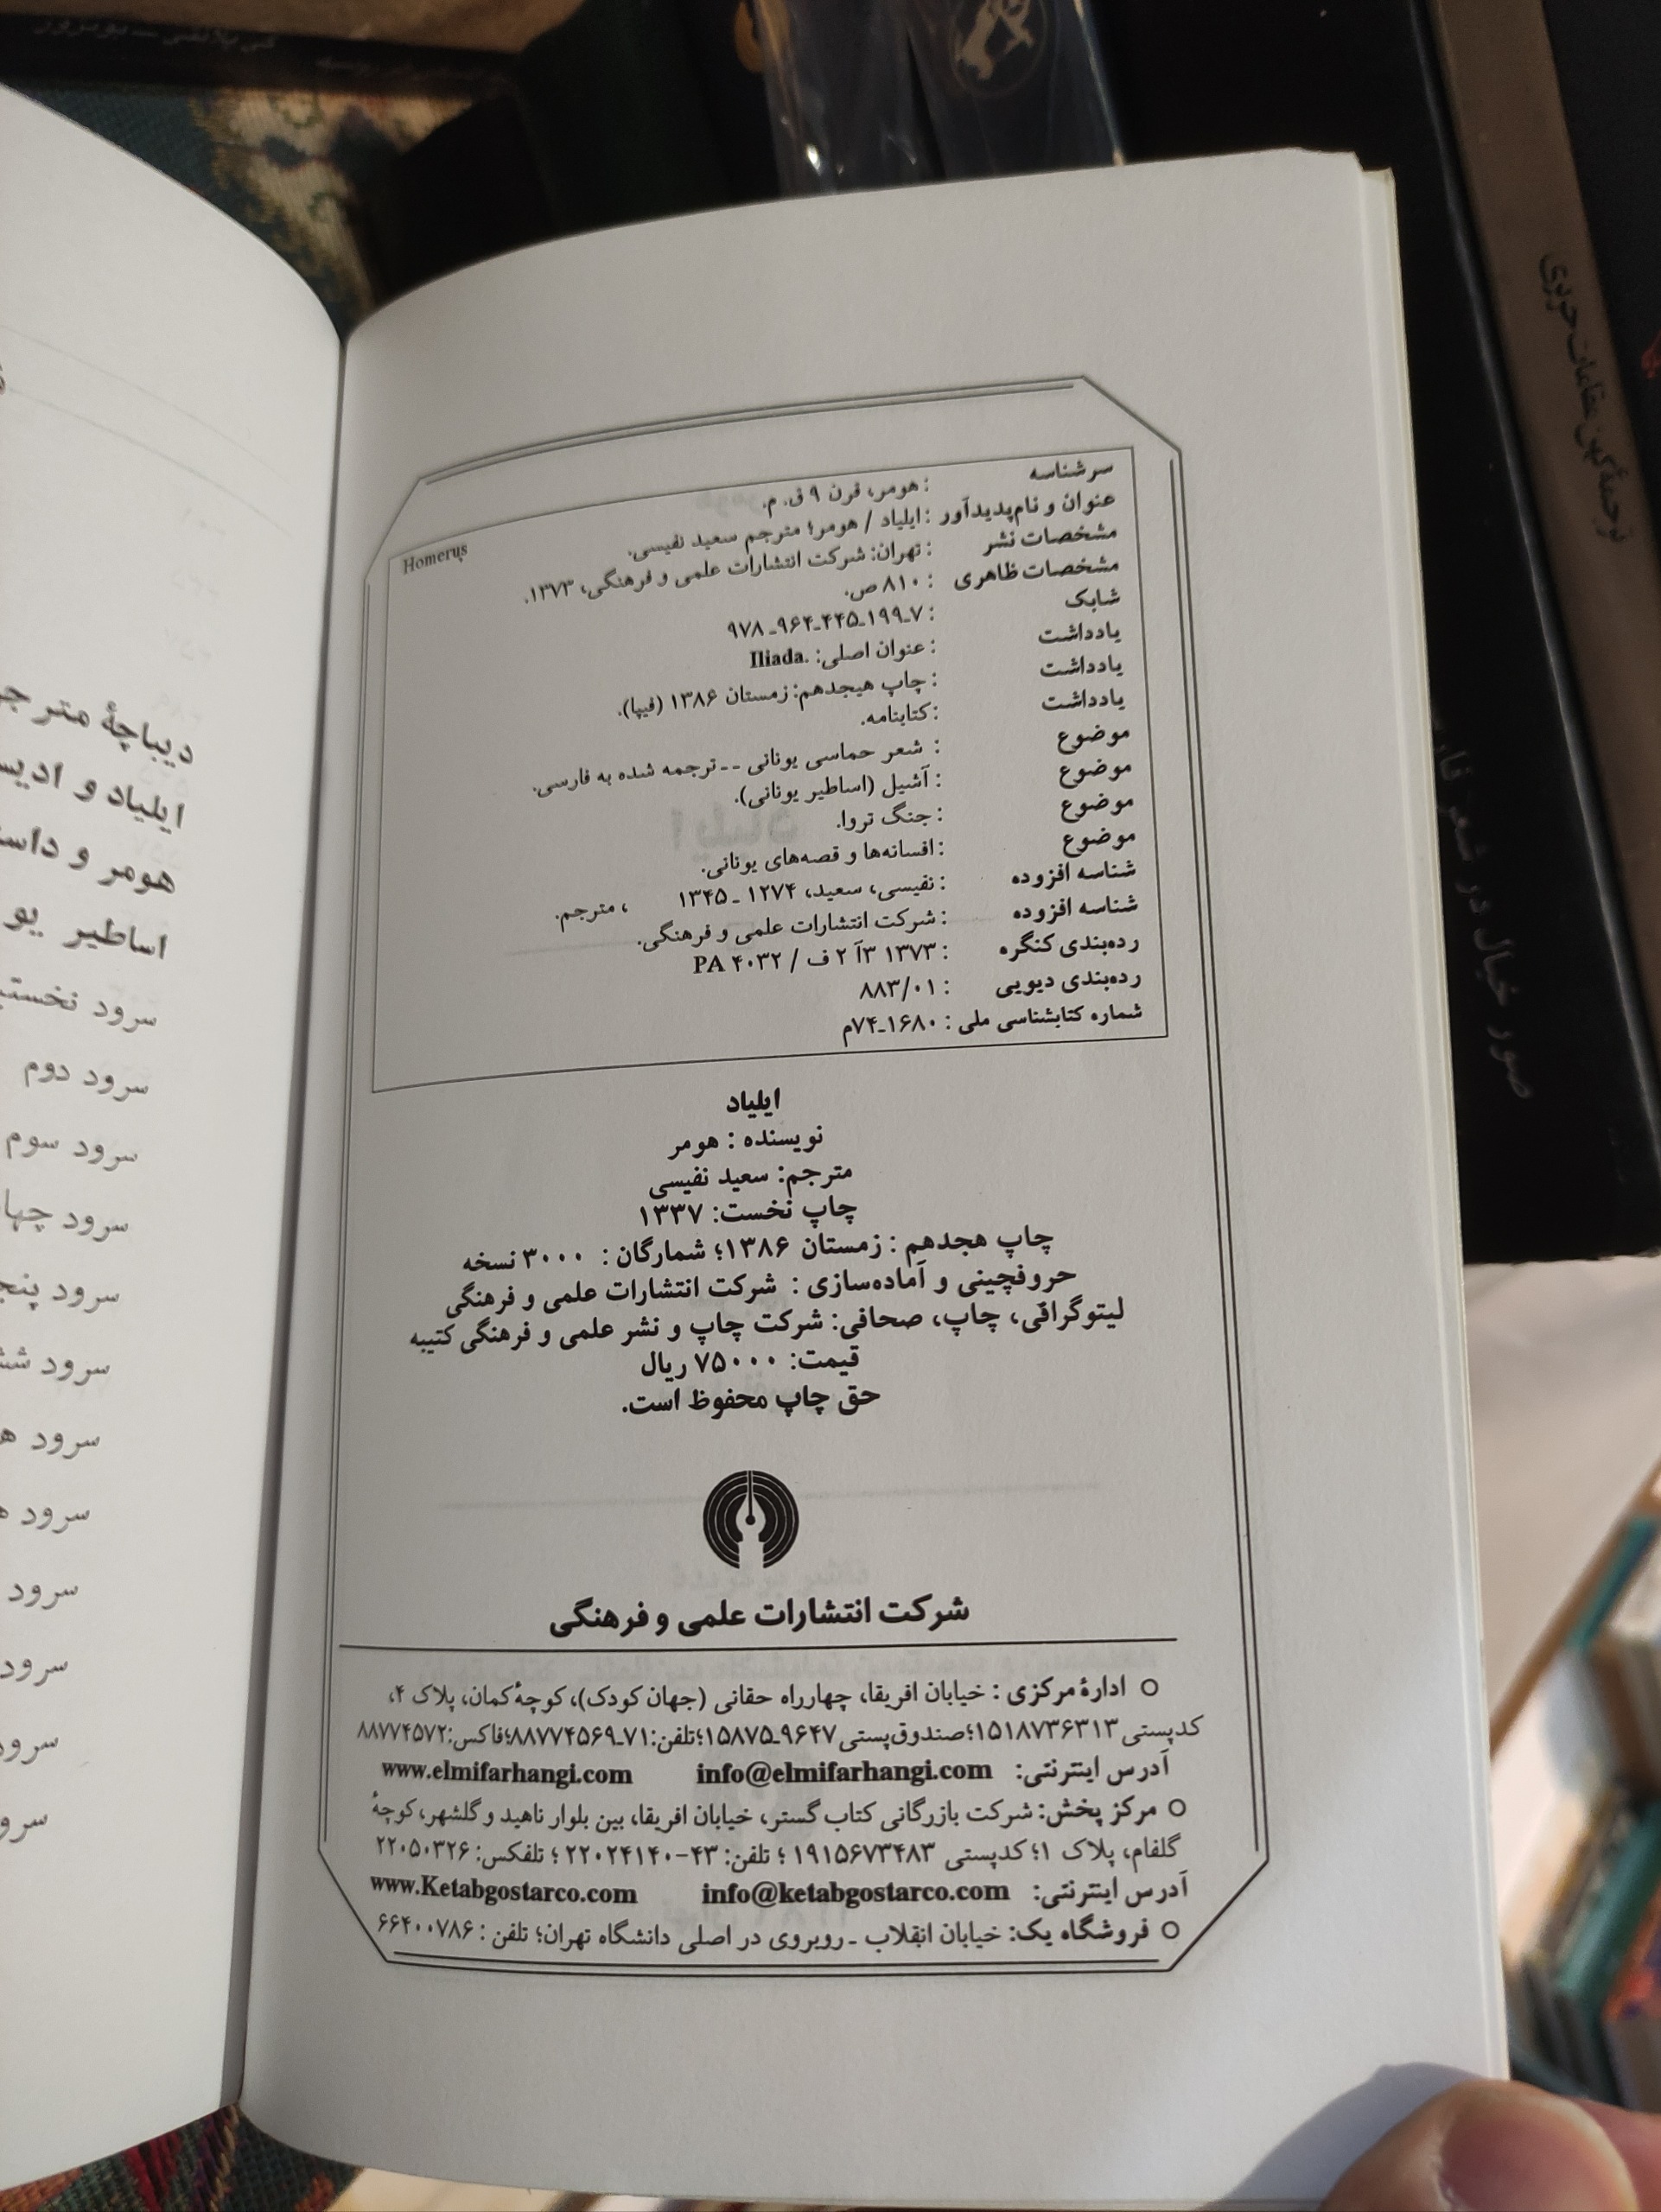 سرشناسه : هومر، قرن ۹ ق. م. Homerus
عنوان و نام‌پدیدآور : ایلیاد / هومر؛ مترجم سعید نفیسی.
مشخصات نشر : تهران: شرکت انتشارات علمی و فرهنگی، ۱۳۷۳.
مشخصات ظاهری : ۸۱۰ ص.
شابک : ۹۷۸-۹۶۴-۴۴۵-۱۹۹-۷
یادداشت : عنوان اصلی: Iliada.
یادداشت : چاپ هیجدهم: زمستان ۱۳۸۶ (فیپا).
یادداشت : کتابنامه.
موضوع : شعر حماسی یونانی -- ترجمه شده به فارسی.
موضوع : آشیل (اساطیر یونانی).
موضوع : جنگ تروا.
موضوع : افسانه‌ها و قصه‌های یونانی.
شناسه افزوده : نفیسی، سعید، ۱۲۷۴ ـ ۱۳۴۵ ، مترجم.
شناسه افزوده : شرکت انتشارات علمی و فرهنگی.
رده‌بندی کنگره : ۱۳۷۳ ۳آ ۲ ف / PA ۴۰۳۲
رده‌بندی دیویی : ۸۸۳/۰۱
شماره کتابشناسی ملی : ۱۶۸۰ـ۷۴م
ایلیاد
نویسنده : هومر
مترجم: سعید نفیسی
چاپ نخست: ۱۳۳۷
چاپ هجدهم : زمستان ۱۳۸۶؛ شمارگان : ۳۰۰۰ نسخه
حروفچینی و آماده‌سازی : شرکت انتشارات علمی و فرهنگی
لیتوگرافی، چاپ، صحافی: شرکت چاپ و نشر علمی و فرهنگی کتیبه
قیمت: ۷۵۰۰۰ ریال
حق چاپ محفوظ است.
شرکت انتشارات علمی و فرهنگی
○ ادارهٔ مرکزی : خیابان افریقا، چهارراه حقانی (جهان کودک)، کوچهٔ کمان، پلاک ۴،
کدپستی ۱۵۱۸۷۳۶۳۱۳؛ صندوق‌پستی ۹۶۴۷ـ۱۵۸۷۵؛ تلفن: ۷۱ـ۸۸۷۷۴۵۶۹؛ فاکس: ۸۸۷۷۴۵۷۲
آدرس اینترنتی: info@elmifarhangi.com www.elmifarhangi.com
○ مرکز پخش: شرکت بازرگانی کتاب گستر، خیابان افریقا، بین بلوار ناهید و گلشهر، کوچهٔ
گلفام، پلاک ۱؛ کدپستی ۱۹۱۵۶۷۳۴۸۳ ؛ تلفن: ۴۳-۲۲۰۲۴۱۴۰ ؛ تلفکس: ۲۲۰۵۰۳۲۶
آدرس اینترنتی: info@ketabgostarco.com www.Ketabgostarco.com
○ فروشگاه یک: خیابان انقلاب ـ روبروی در اصلی دانشگاه تهران؛ تلفن : ۶۶۴۰۰۷۸۶
دیباچهٔ
ایلیاد و
هومر و
اساطیر
سرود
سرود دوم
سرود سوم
سرود
سرود
سرود
سرود
سرود
سرود
سرود
ترجمهٔ کهن مقامات حریری
صور خیال در شعر